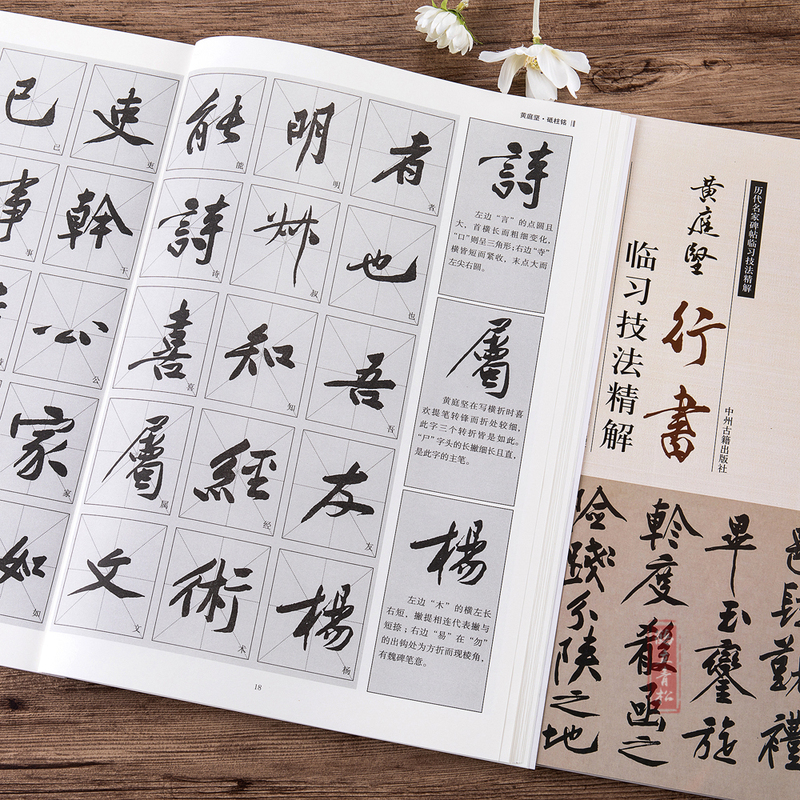 黄庭坚·砥柱铭
者 也 吾 友 楊
者 也 吾 友 杨
明 叔 知 經 術
明 叔 知 经 术
能 詩 喜 屬 文
能 诗 喜 属 文
吏 幹 公 家 如
吏 干 公 家 如
已 事
己 事
詩
左边“言”的点圆且
大，首横长而粗细变化，
“口”则呈三角形；右边“寺”
横皆短而紧收，末点大而
左尖右圆。
屬
黄庭坚在写横折时喜
欢提笔转锋而折处较细，
此字三个转折皆是如此。
“尸”字头的长撇细长且直，
是此字的主笔。
楊
左边“木”的横左长
右短，撇提相连代表撇与
短捺；右边“易”在“勿”
的出钩处为方折而现棱角，
有魏碑笔意。
18
历代名家碑帖临习技法精解
黄庭坚
行書
临习技法精解
中州古籍出版社
之地